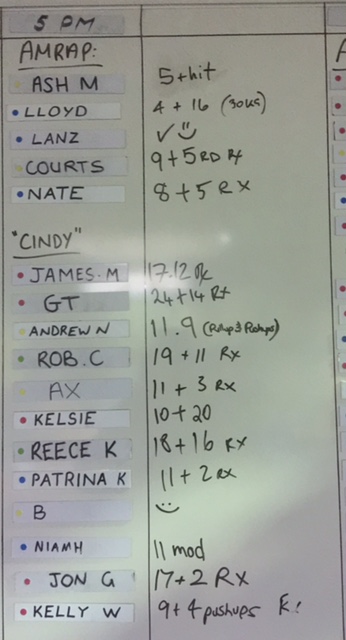 5 PM
AMRAP:
ASH M 5+hit
LLOYD 4 + 16 (30KG)
LANZ ✓ ☺
COURTS 9+5 RD RX
NATE 8+5 RX
"CINDY"
JAMES.M 17.12 RX
GT 24+14 RX
ANDREW N 11.9
ROB.C 19 + 11 RX
AX 11 + 3 RX
KELSIE 10+20
REECE K 18+16 RX
PATRINA K 11+2 RX
B ☺
NIAMH 11 mod
JON G 17+2 RX
KELLY W 9+4 pushups